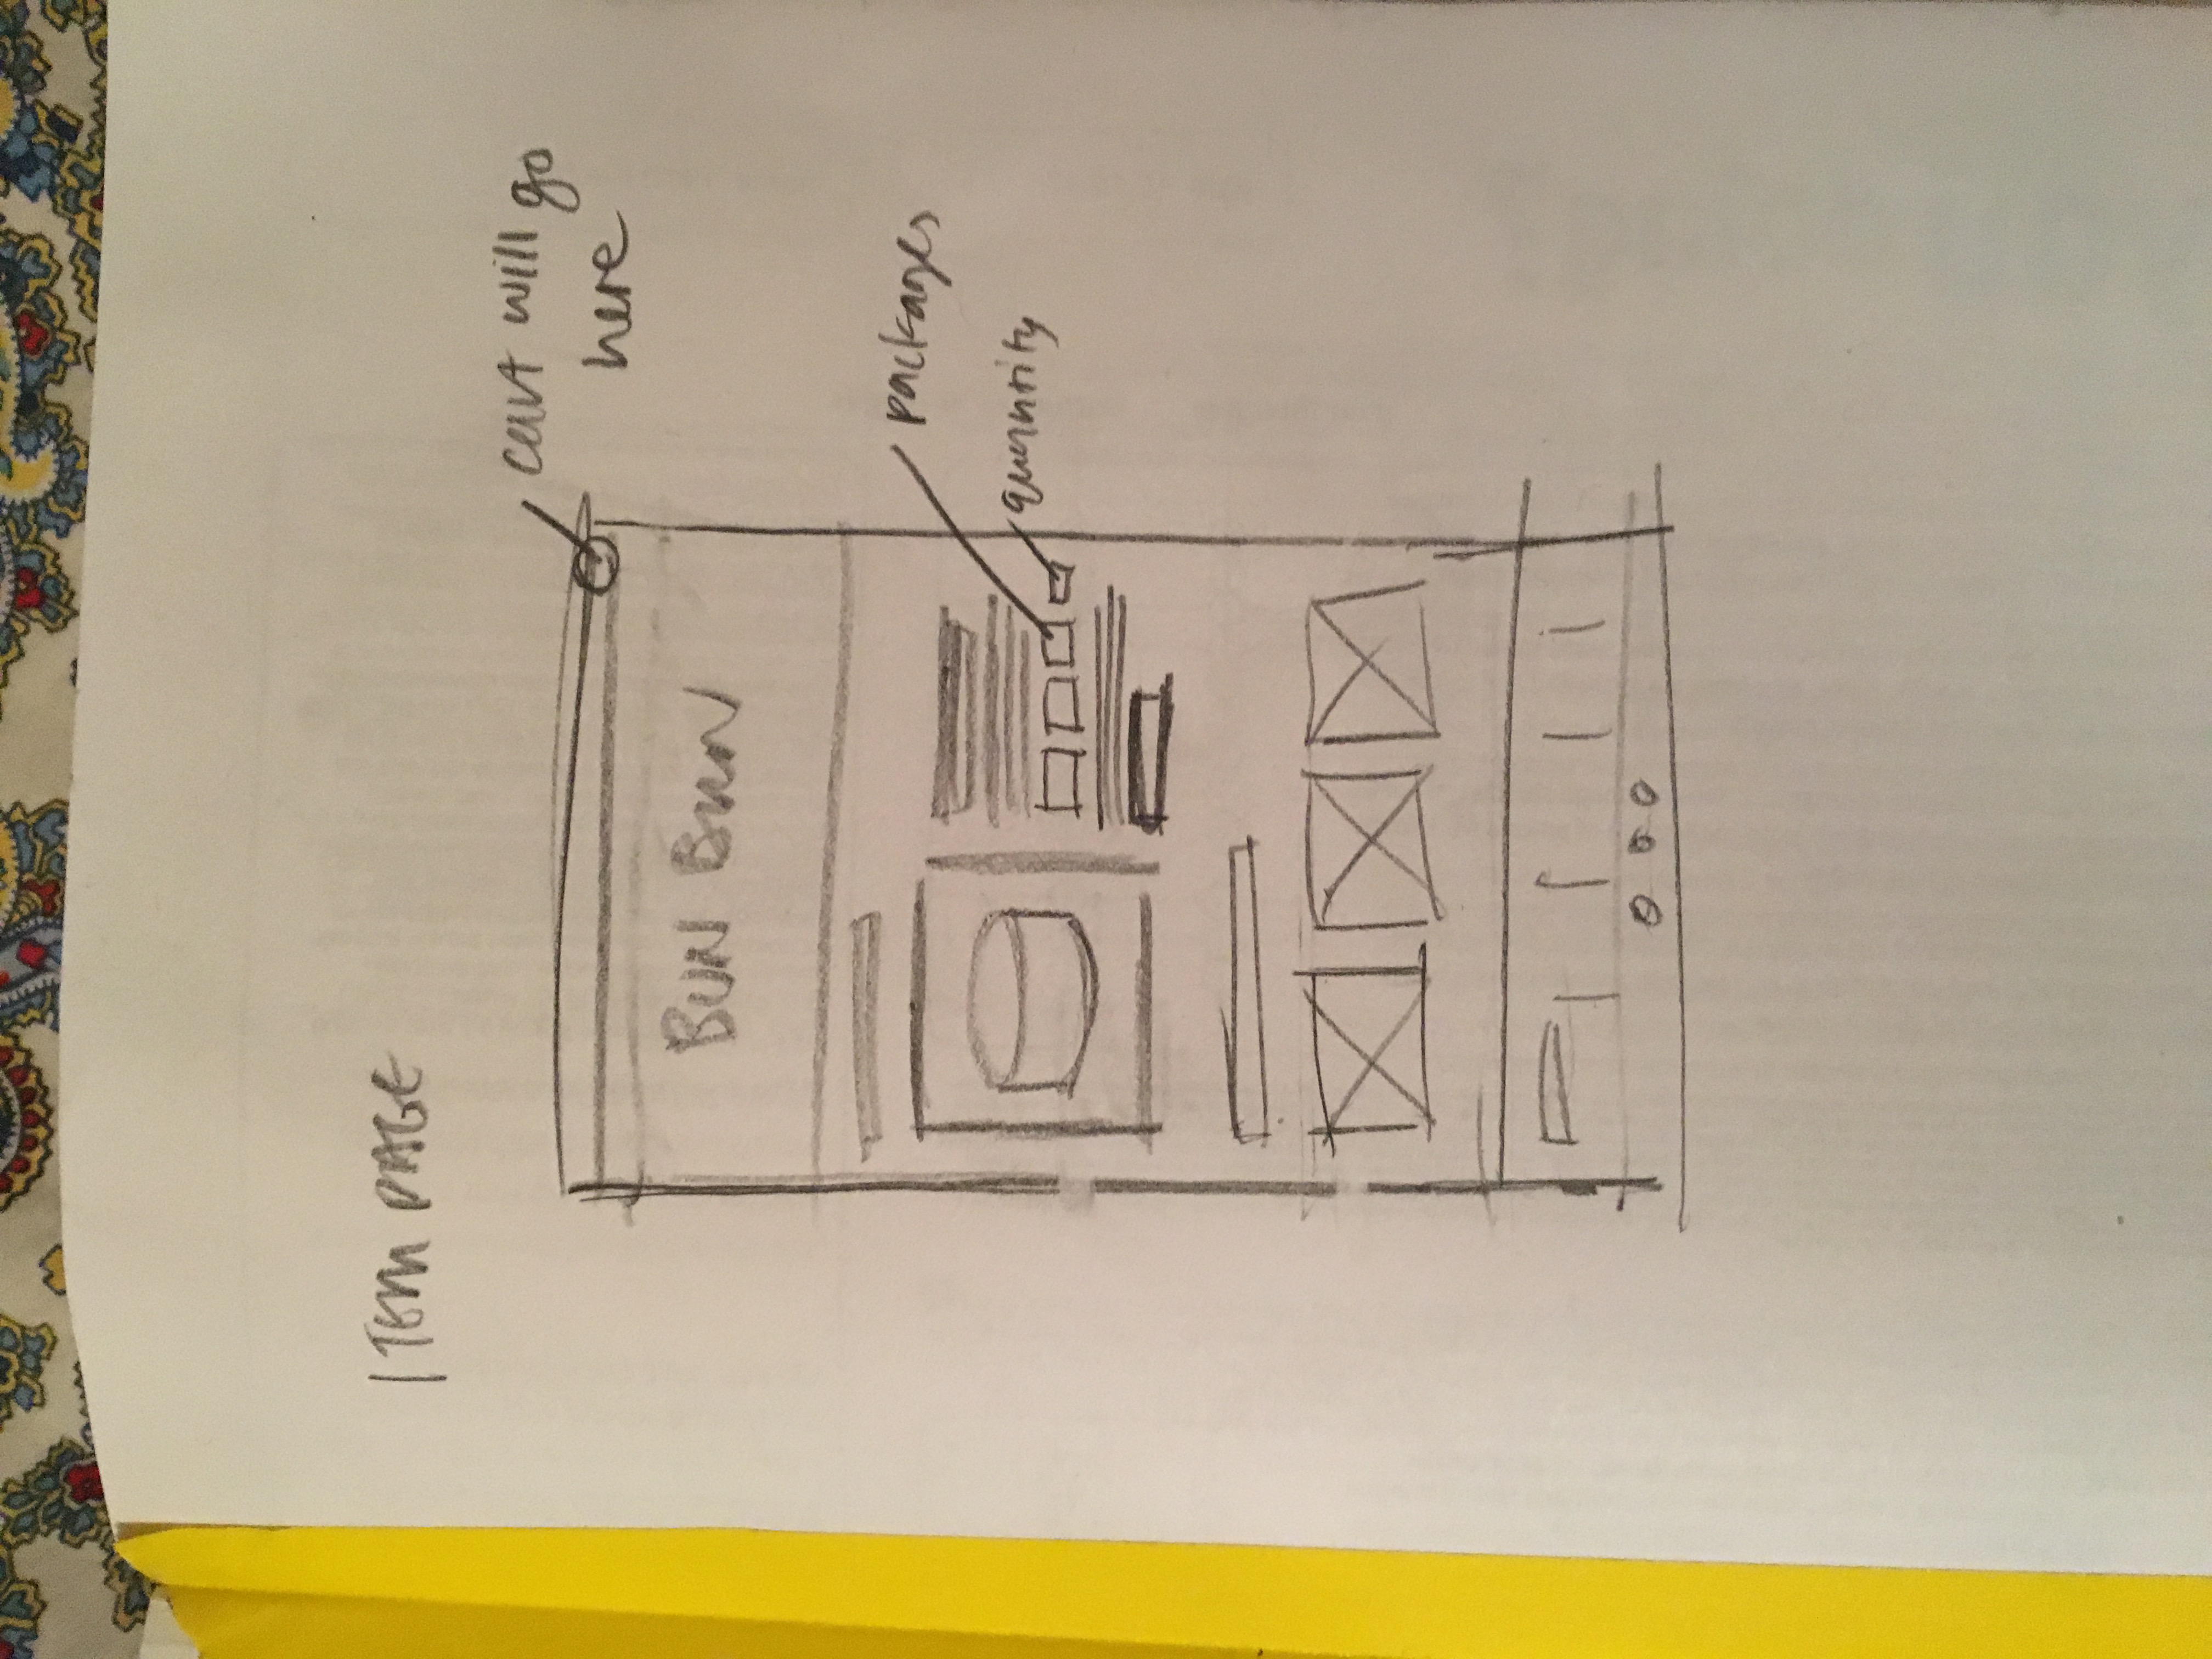 ITEM PAGE
cart will go
here
BUN BUN
packages
quantity